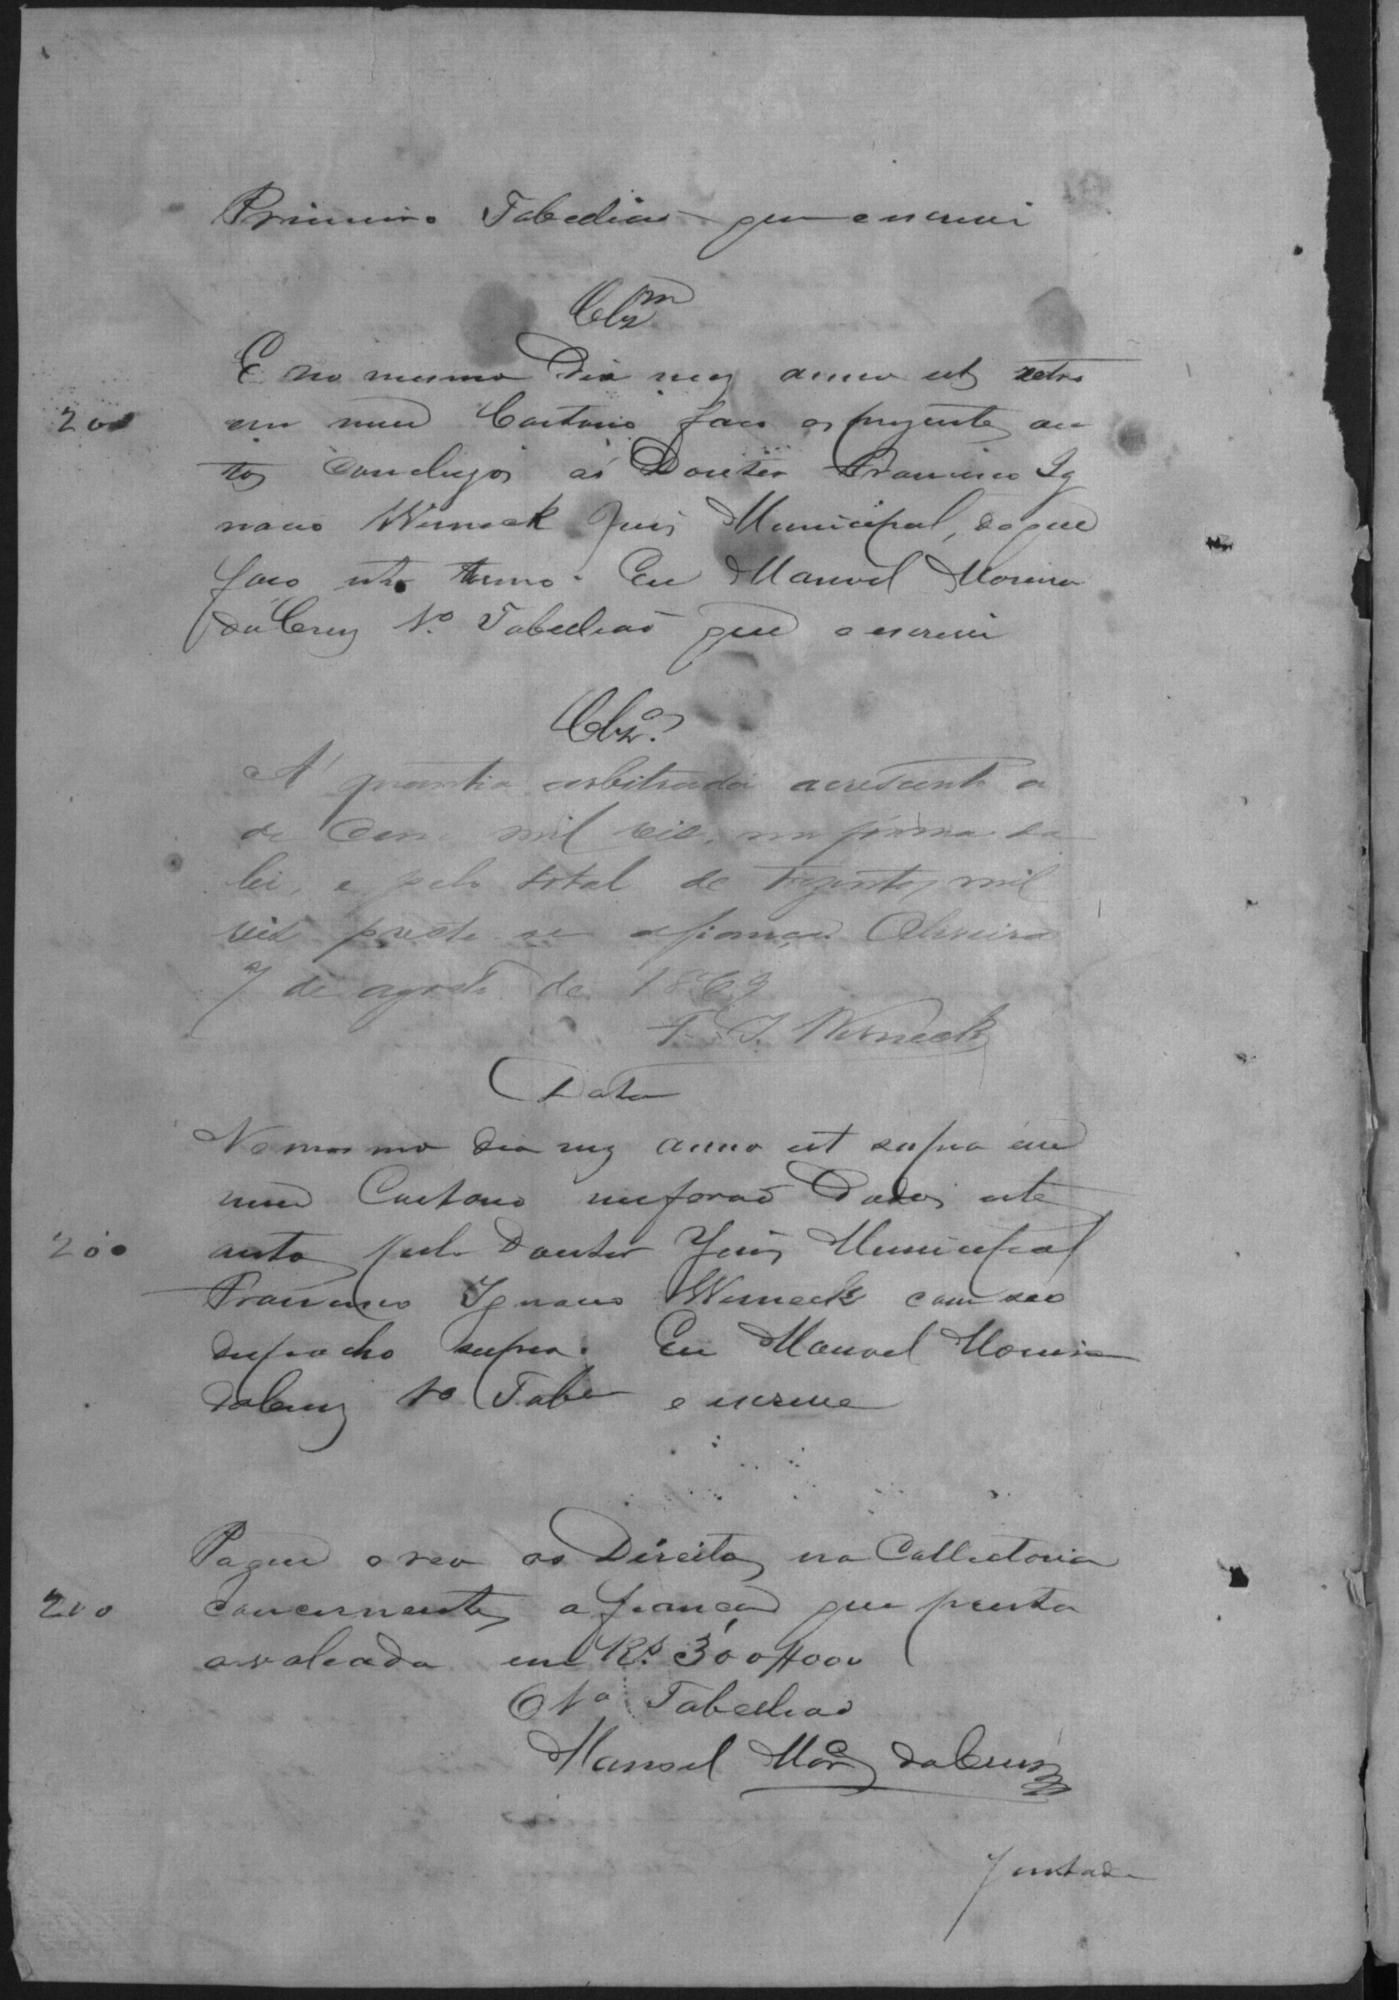 Primeiro Tabelião que o escrevi
Clz.m
E no mesmo dia mez anno ut retro
200
em meu Cartorio faço os prezentes au
tos Concluzos ao Doutor Francisco Ig
nacio Werneck Juis Municipal, do que
faço este termo. Eu Manoel Moreira
da Cruz 1º Tabelião que o escrevi
Clz.o
A' quantia arbitrada acrescente a
de Cem mil reis, na forma da
lei, e pelo total de trezentos mil
reis preste se a fiança Oliveira
7 de agosto de 1863
F. I. Werneck
Data
No mesmo dia mez anno ut supra em
meu Cartorio me forão Dados este
200
autos pelo Doutor Juis Municipal
Francisco Ignacio Werneck com seo
despacho supra. Eu Manoel Moreira
da Cruz 1º Tabam o escrevi
Pague o reo os Direitos na Collectoria
200
concernentes a fiança que presta
avaleada em Rs. 300#000
O 1º Tabelião
Manoel Mora da Cruz
Juntada